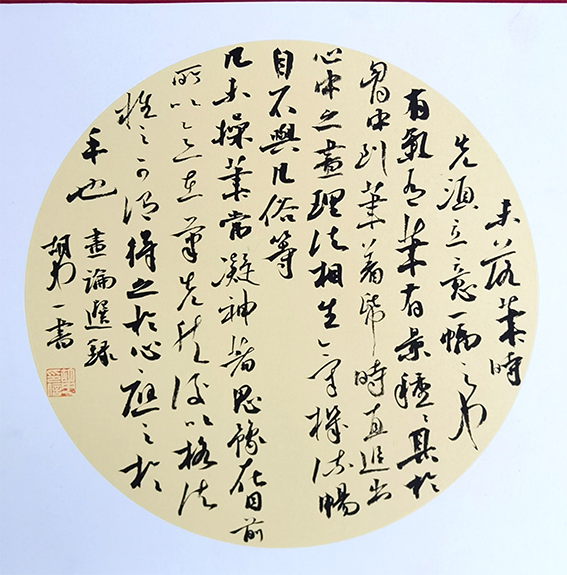 未落筆時
先須立意一幅之中
有氣有筆有景種種具於
胷中到筆着紙時直追出
心中之畫理法相生氣機流暢
自不與凡俗等
凡未操筆當凝神着思豫在目前
所以意在筆先然後以格法
推之可謂得之於心應之於
手也 畫論選錄
胡 一書